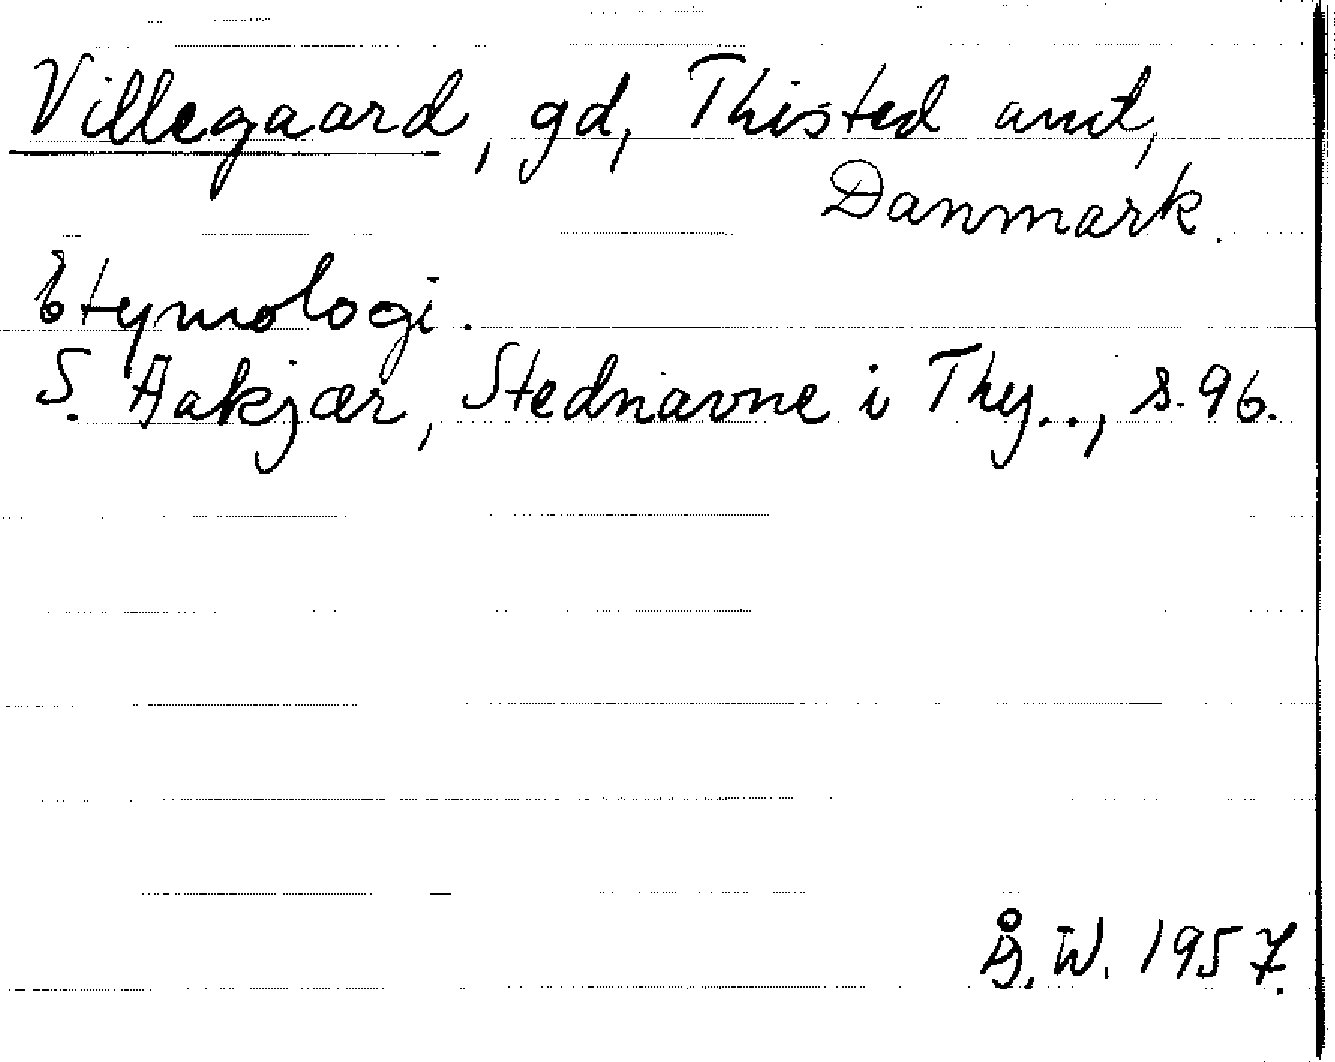 Villegaard, gd, Thisted amt,
Danmark.
Etymologi.
S. Aakjær, Stednavne i Thy.., s. 96.
Å. W. 1957.